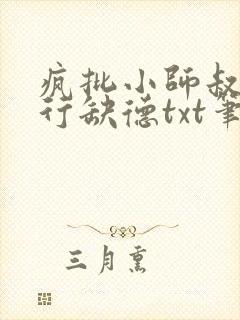 疯批小师叔
行缺德txt笔
三月熏